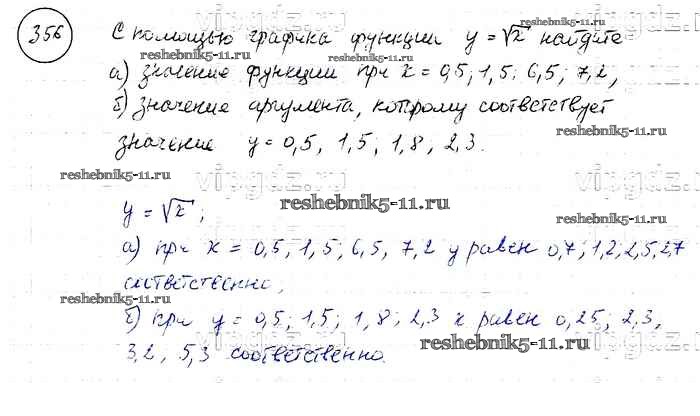 356 С помощью графика функции y = √x найдите
а) значение функции при x = 0,5; 1,5; 6,5; 7,2,
б) значение аргумента, которому соответствует
значение y = 0,5, 1,5; 1,8, 2,3.
y = √x;
а) при x = 0,5, 1,5; 6,5, 7,2 y равен 0,7; 1,2, 2,5, 2,7
соответственно,
б) при y = 0,5; 1,5; 1,8; 2,3 x равен 0,25, 2,3,
3,2, 5,3 соответственно.
reshebnik5-11.ru
reshebnik5-11.ru
reshebnik5-11.ru
reshebnik5-11.ru
reshebnik5-11.ru
reshebnik5-11.ru
reshebnik5-11.ru
reshebnik5-11.ru
vipgdz.ru
vipgdz.ru
vipgdz.ru
vipgdz.ru
vipgdz.ru
vipgdz.ru